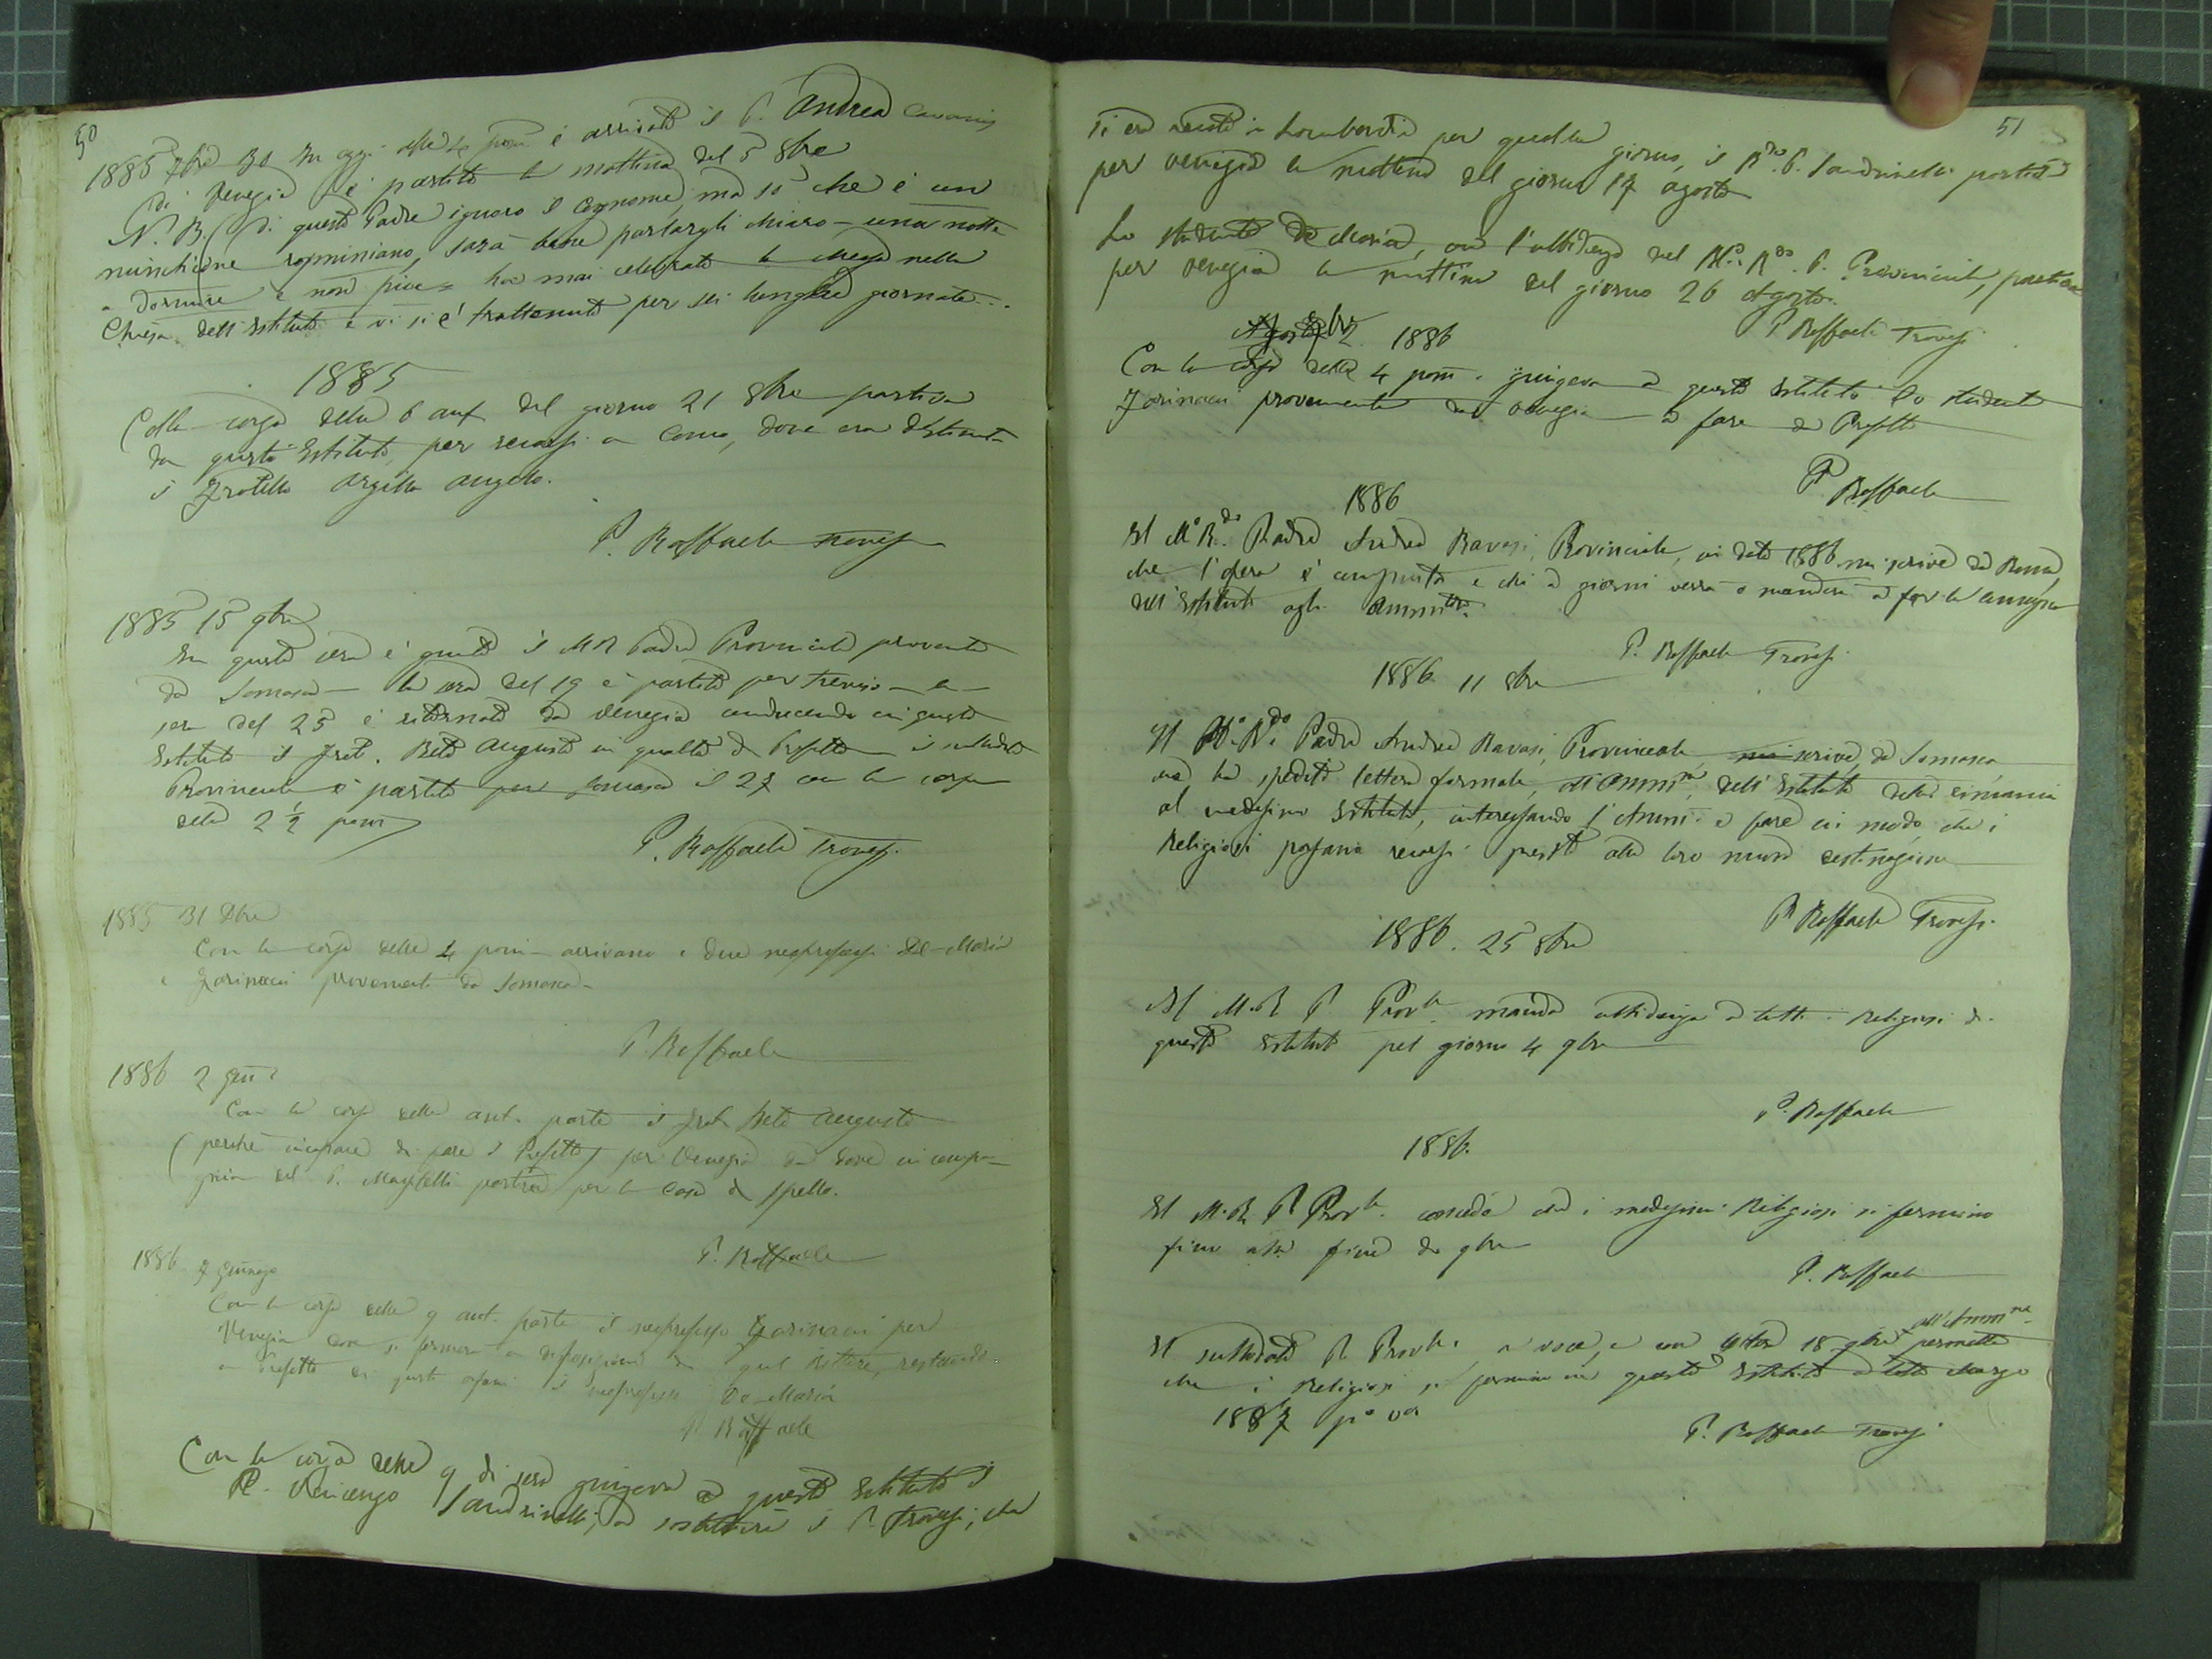 50
1885 7bre 30 In oggi alle 4 pom è arrivato il P. Andrea
di Venezia è partito la mattina del 5 8bre
N. B. (Di questo Padre ignoro il cognome, ma so che è un
sarà bene parlargli chiaro — una notte
a dormire e non più = ha mai celebrato la Messa nella
Chiesa dell'Istituto e vi si è trattenuto per sei lunghe giornate...
1885
Colla corsa delle 6 ant del giorno 21 8bre partiva
da questo Istituto, per recarsi a Como, dove era destinato
il Fratello Argilla Angelo.
P. Raffaele Trovesi
1885 15 9bre
In questa sera è giunto il M R Padre Provinciale proveniente
da Somasca — la sera del 19 è partito per Treviso — la
sera del 25 è ritornato da Venezia conducendo in questo
Istituto il Frat. Beta Augusto in qualità di Prefetto — il sullodato
Provinciale è partito per Somasca il 27 con la corsa
delle 2 ½ pom
P. Raffaele Trovesi
1885 31 Xbre
Con la corsa delle 4 pom — arrivano i due neoprofessi De-Maria
e Farinacci provenienti da Somasca —
P. Raffaele
1886 2 Genn
Con la corsa delle ant. parte il Frat. Beta Augusto
(perchè incapace di fare il Prefetto) per Venezia da dove in compa-
gnia del P. partirà per la Casa di Spello.
P. Raffaele
1886 7
Con la corsa delle 9 ant. parte il neoprofesso Farinacci per
Venezia ove si fermerà a disposizione di quel Rettore, restando
a Prefetto di questi orfani il neoprofesso De-Maria
P. Raffaele
Con la corsa delle 9 di sera giungeva a questo Istituto il
P. Vincenzo Sandrinelli, a sostituire il P. Trovesi, che
51
si era recato in Lombardia per qualche giorno, il R.do P. Sandrinelli partiva
per Venezia la mattina del giorno 17 agosto
Lo studente De Maria, con l'ubbidienza del M. R.do P. Provinciale, partiva
per Venezia la mattina del giorno 26 Agosto.
P Raffaele Trovesi
2. 1886
Con la corsa delle 4 pom. giungeva a questo Istituto lo studente
Farinacci proveniente da Venezia a fare da Prefetto
P. Raffaele
1886
Il M.o R.do Padre Andrea Ravasi, Provinciale, in data 1886 mi scrive da Roma,
che l'opera è compiuta e che a giorni verrà o manderà a far la consegna
dell'Istituto agli Amminri.
P. Raffaele Trovesi
1886 11 8bre
Il M.o R.do Padre Andrea Ravasi, Provinciale, mi scrive, da Somasca
ha spedito lettera formale, all'Ammne. dell'Istituto della rinuncia
al medesimo Istituto, interessando l'Ammi. a fare in modo che i
Religiosi possano recarsi presto alla loro nuova destinazione
P. Raffaele Trovesi.
1886. 25 8bre
Il M. R P Provle manda ubbidienza a tutti i Religiosi di
questo Istituto pel giorno 4 9bre
P. Raffaele
1886.
Il M. R. P Provle. concede che i medesimi Religiosi si fermino
fino alla fine di 9bre
P. Raffaele
Il sullodato P. Provle, a voce, e con lettera 18 9bre all'Ammne permette
che i Religiosi si fermino in questo Istituto a tutto Marzo
1887 po vo
P. Raffaele Trovesi